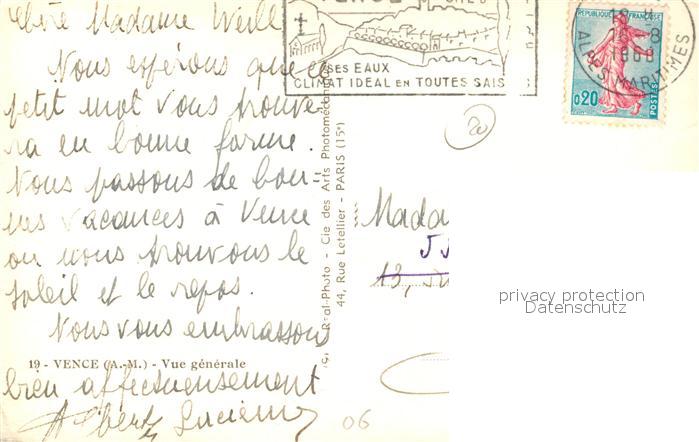 Chère Madame Weill
Nous espérons que ce
petit mot vous trouve-
ra en bonne forme.
Nous passons de bon-
nes vacances à Vence
où nous trouvons le
soleil et le repos.
Nous vous embrassons
19 - VENCE (A.-M.) - Vue générale
bien affectueusement
Albert Lucienne
06
Real-Photo - Cie des Arts Photomécaniques
44, Rue Letellier - PARIS (15e)
VENCE
SES EAUX
CLIMAT IDEAL EN TOUTES SAIS
REPUBLIQUE FRANÇAISE
0,20
POSTES
ALPES MARITIMES
20
Mada
13,
privacy protection
Datenschutz